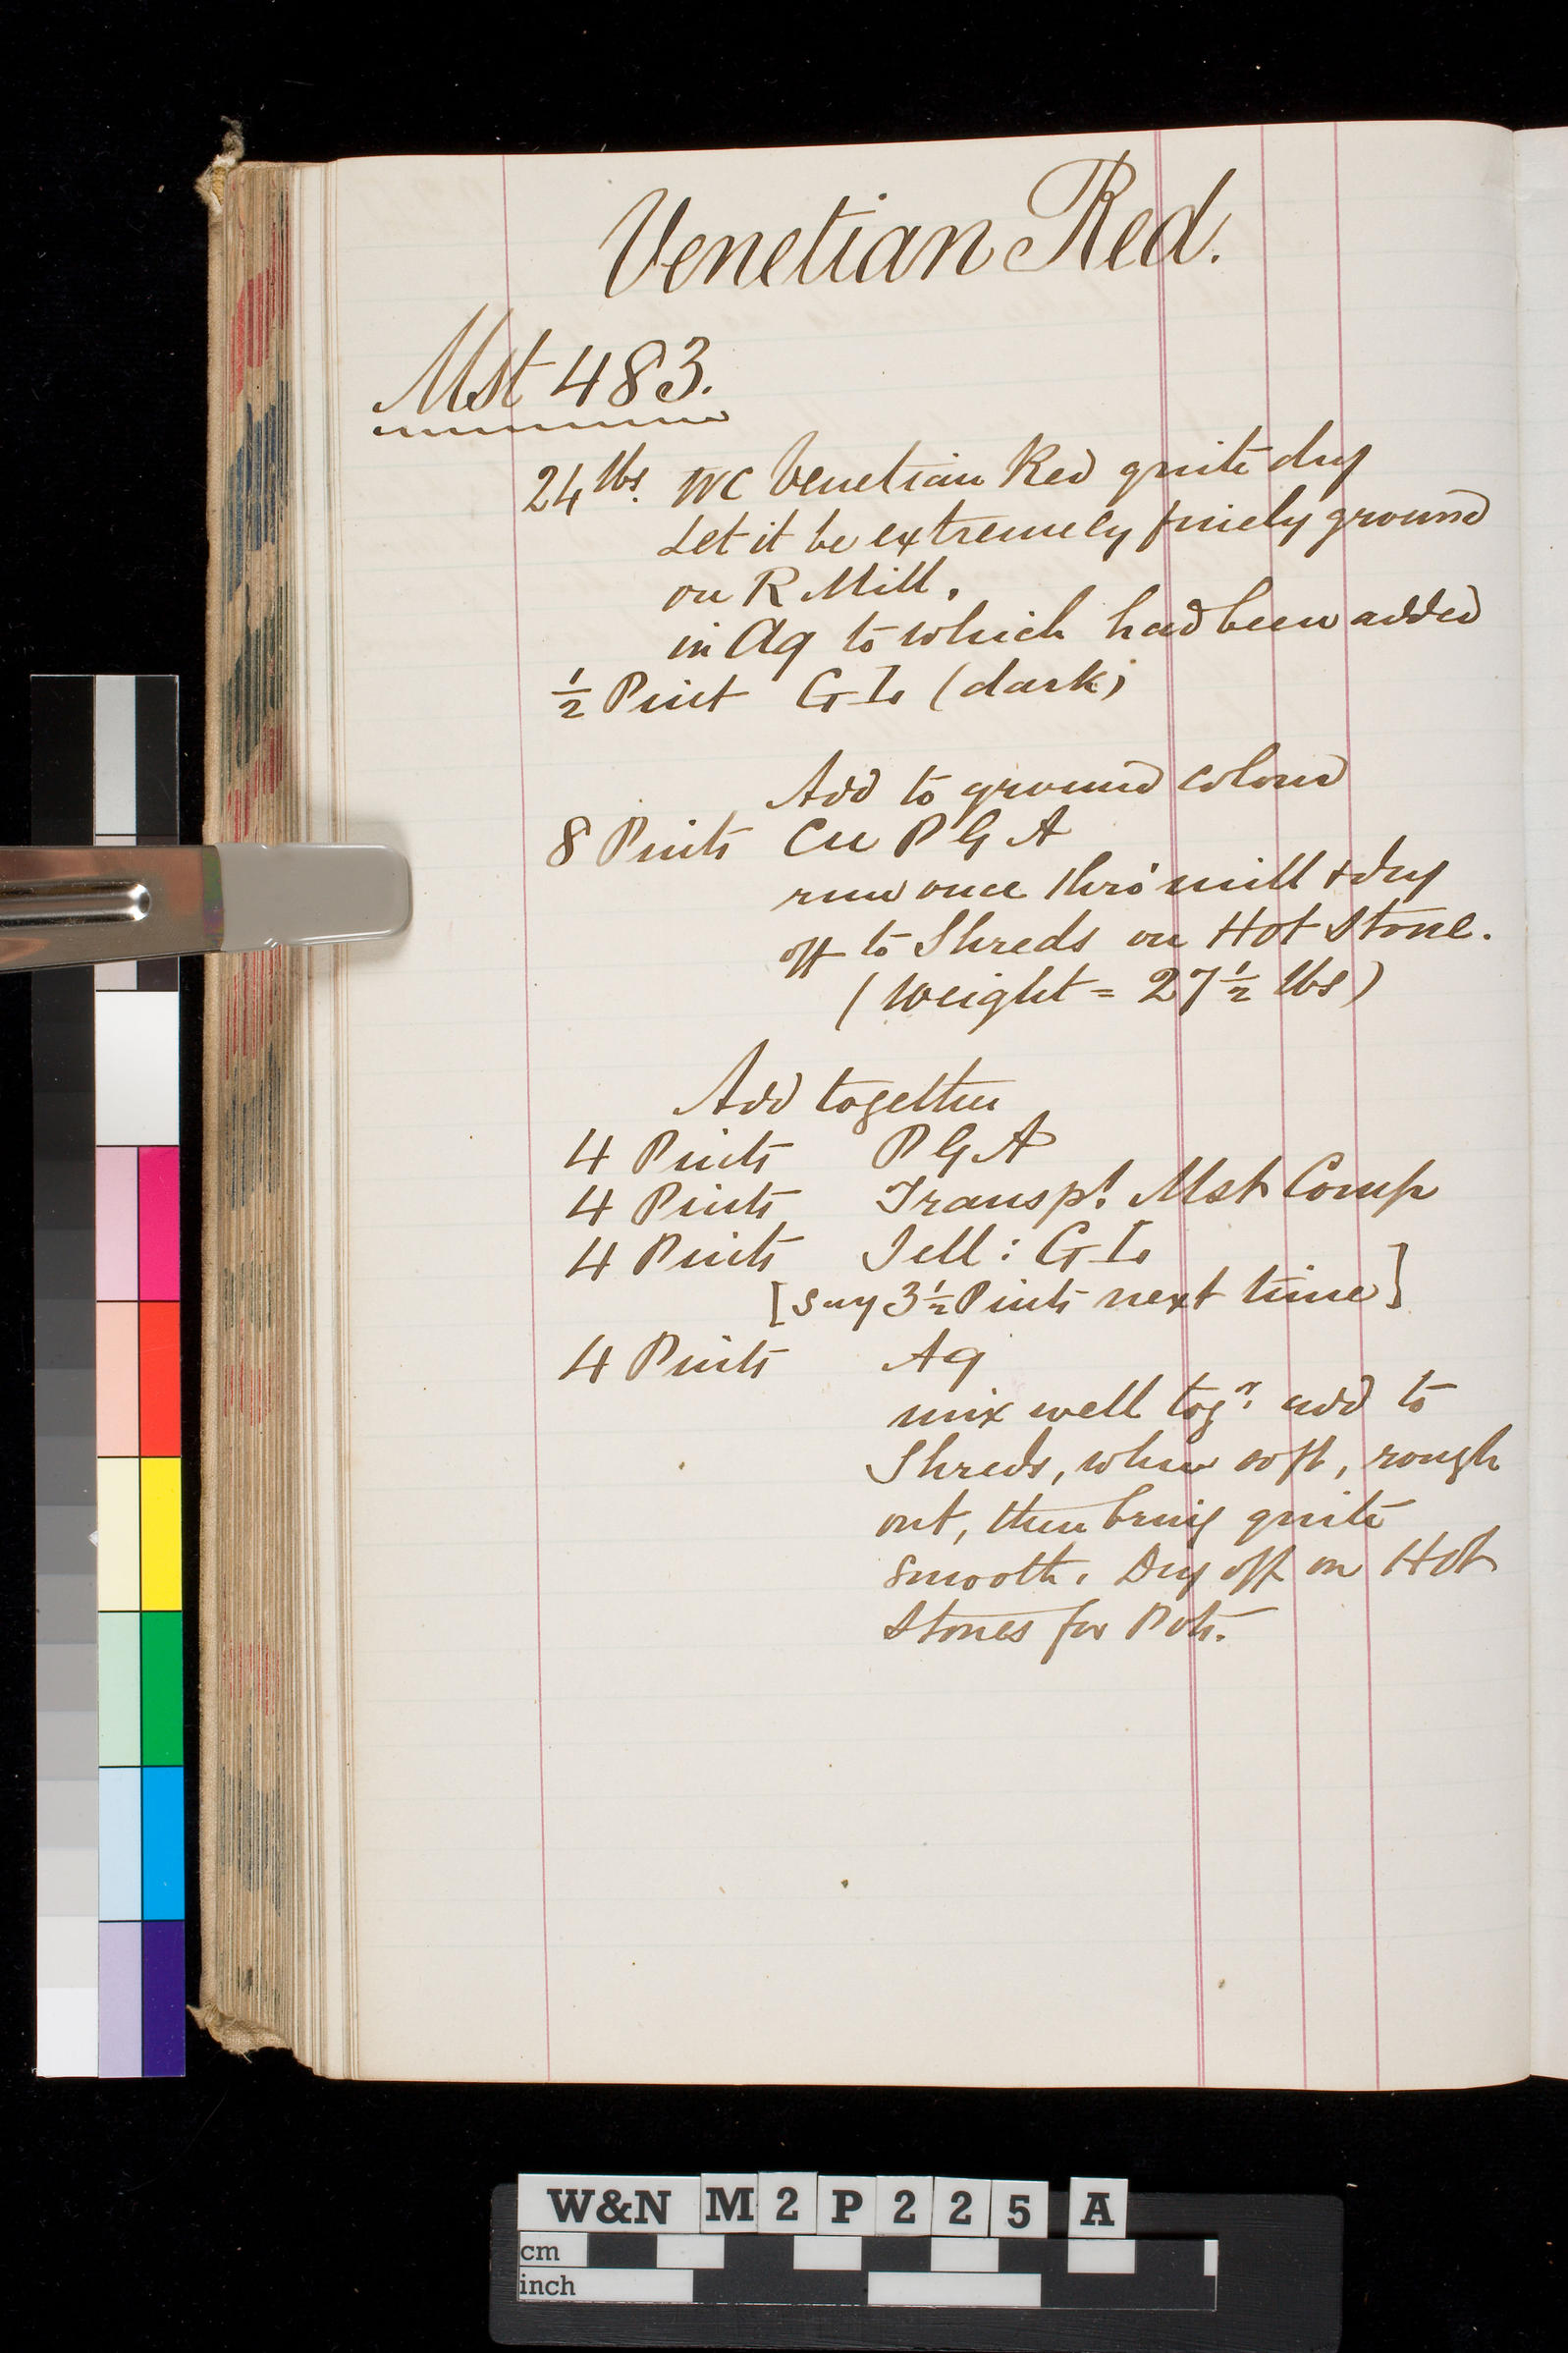 Venetian Red.
Mst 483.
24 lbs. WC Venetian Red quite dry
Let it be extremely finely ground
on R Mill.
in Aq to which had been added
½ Pint G L (dark)
Add to ground colour
8 Pints Cu P G A
run once thro' mill & dry
off to Shreds on Hot Stone.
(Weight = 27½ lbs)
Add together
4 Pints P G A
4 Pints Transpt. Mst Comp
4 Pints Jell: G L
[say 3½ Pints next time]
4 Pints Aq
mix well togr. add to
Shreds, when soft, rough
out, then bring quite
smooth. Dry off on Hot
Stones for Pots.
W&N M2P225A
cm
inch